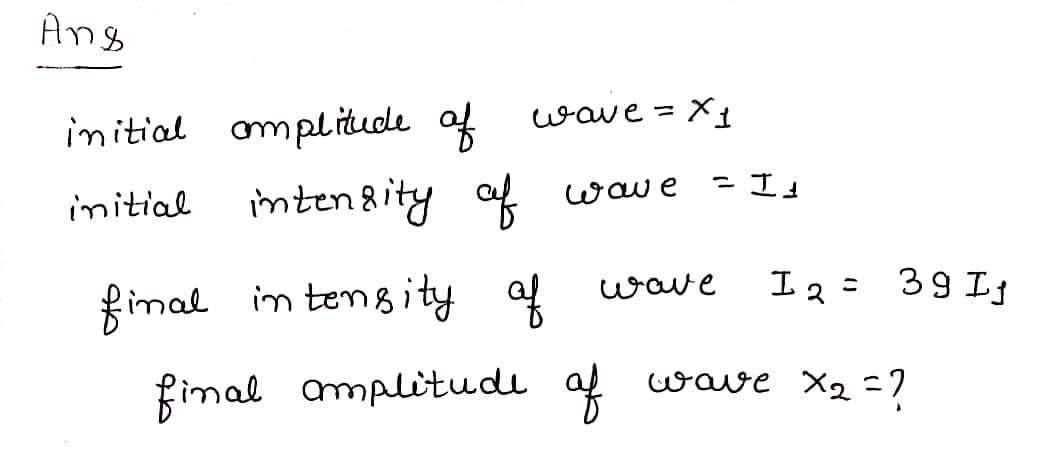 Ans
initial amplitude of wave = x1
initial intensity of wave = I1
final intensity of wave I2 = 39 I1
final amplitude of wave x2 = ?